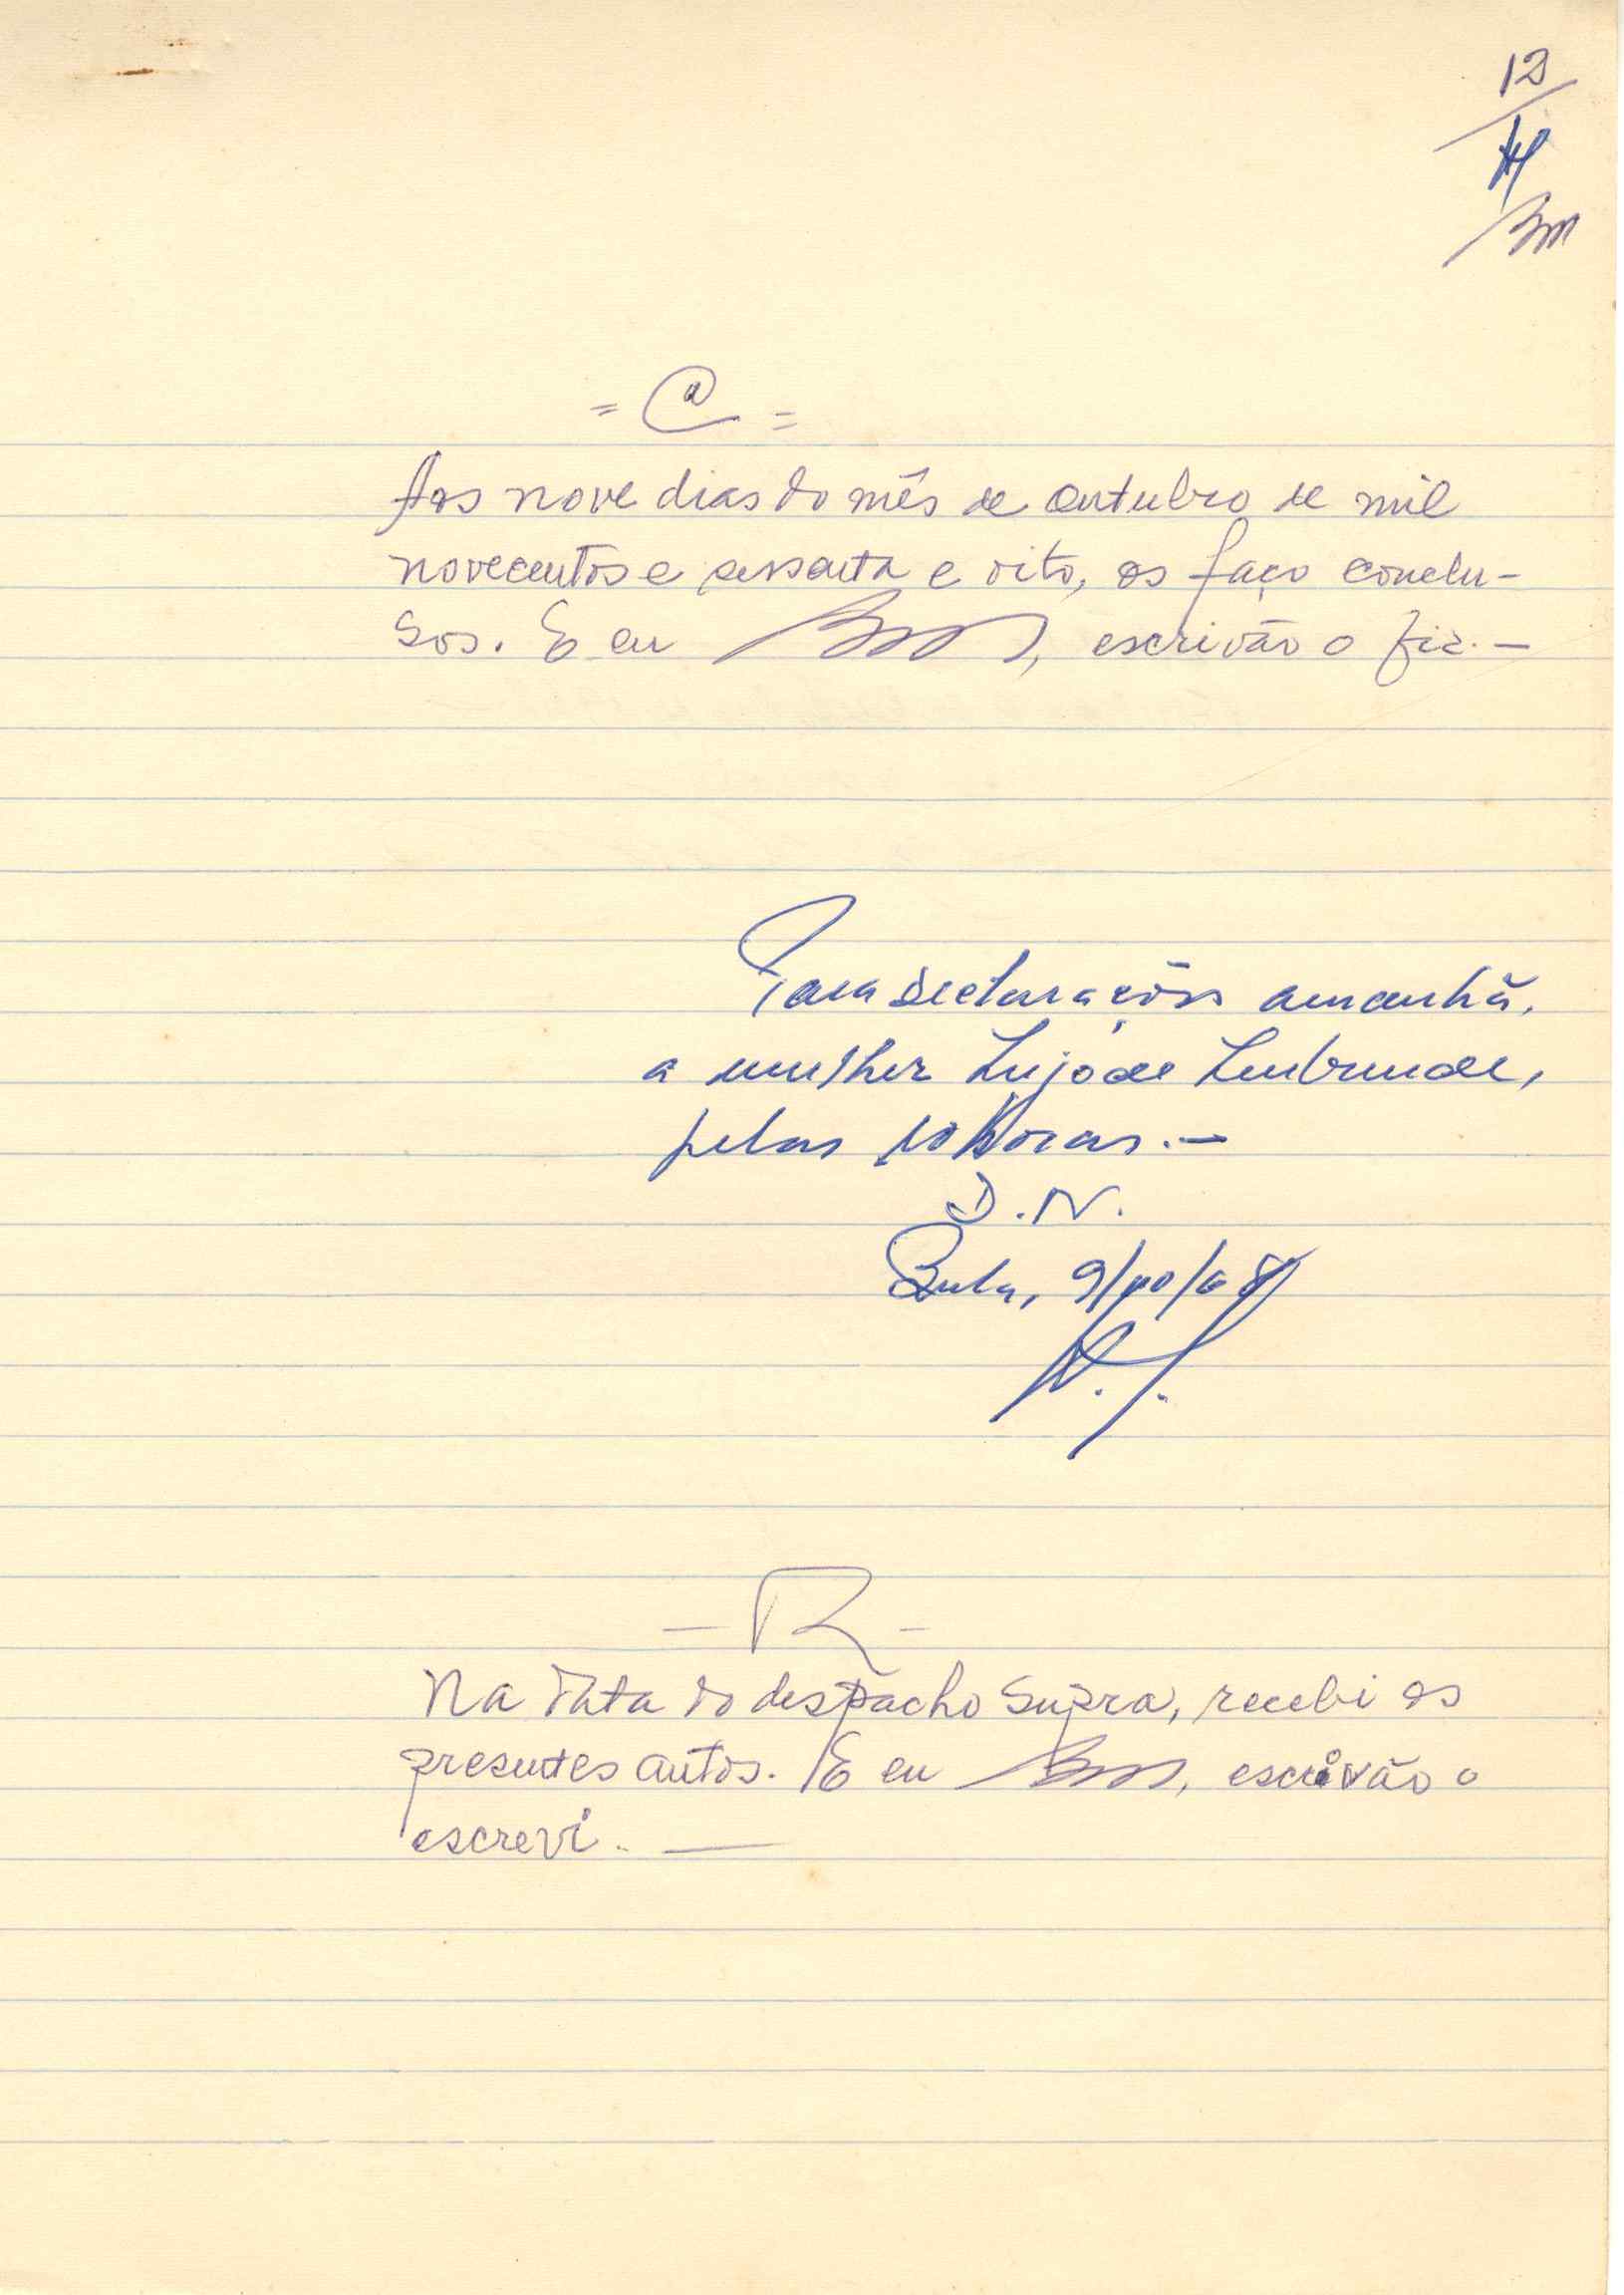 12
= Cl =
Aos nove dias do mês de outubro de mil
novecentos e sessenta e oito, os faço conclu-
sos. E eu , escrivão o fiz. —
Para declarações amanhã,
a mulher de
pelas 10 horas. —
D. N.
Bula, 9/10/68
— R —
Na data do despacho supra, recebi os
presentes autos. E eu , escrivão o
escrevi. —